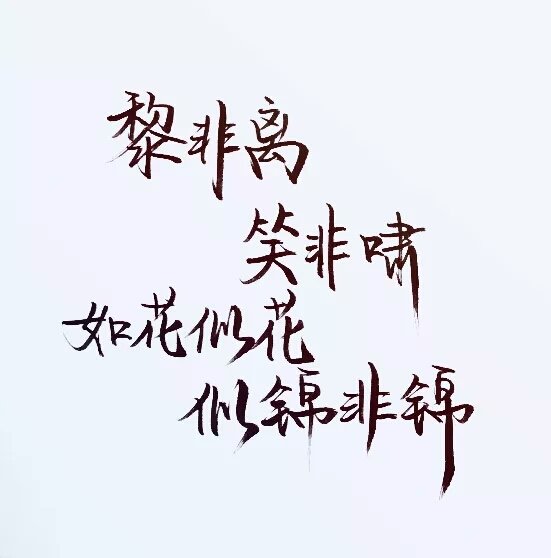 黎非离
笑非啸
如花似花
似锦非锦